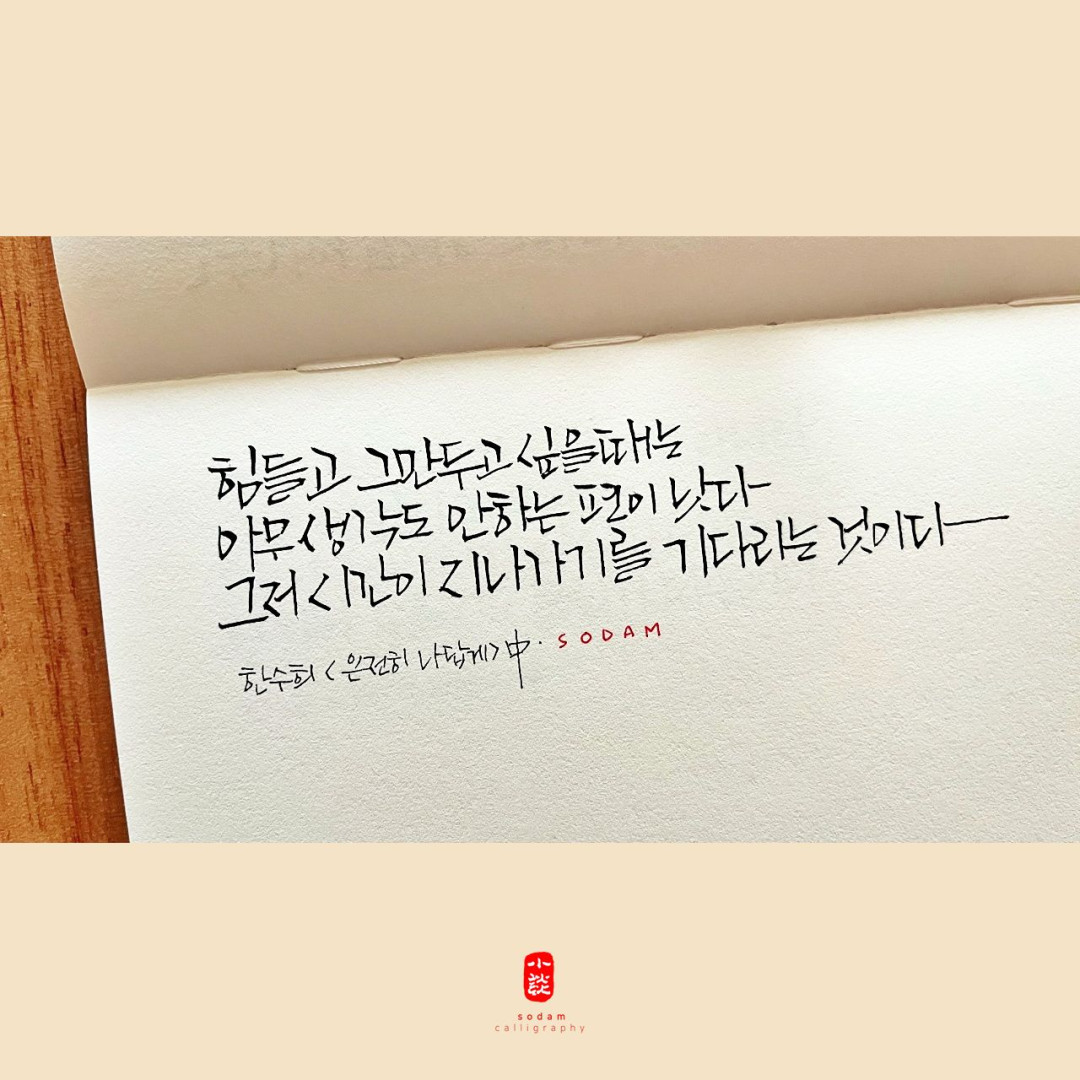 힘들고 그만두고 싶을때는
아무생각도 안하는 편이 낫다
그저 시간이 지나가기를 기다리는 것이다
한수희 <온전히 나답게> 中. SODAM
小談
sodam
calligraphy